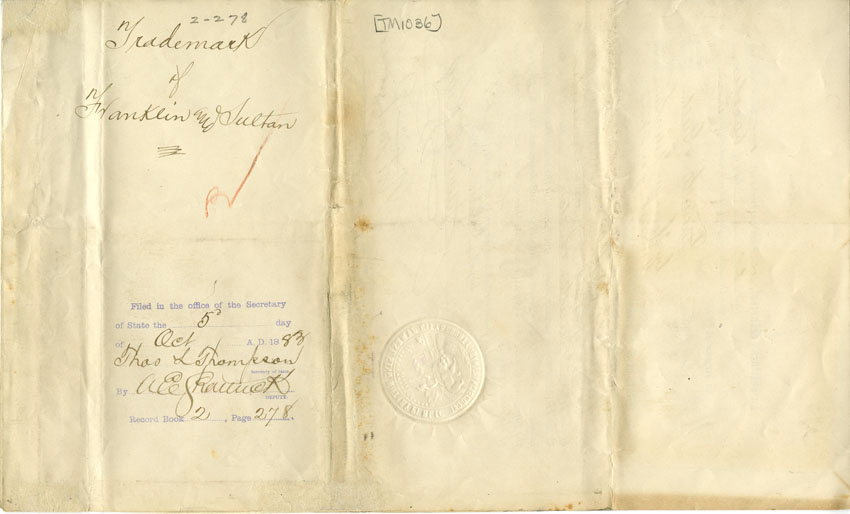 2-278
[TM1036]
Trademark
of
Franklin and Sultan
Filed in the office of the Secretary
of State the 5 day
of Oct A. D. 188
Thos L Thompson
Secretary of State
By A E Shattuck
DEPUTY.
Record Book 2, Page 278.